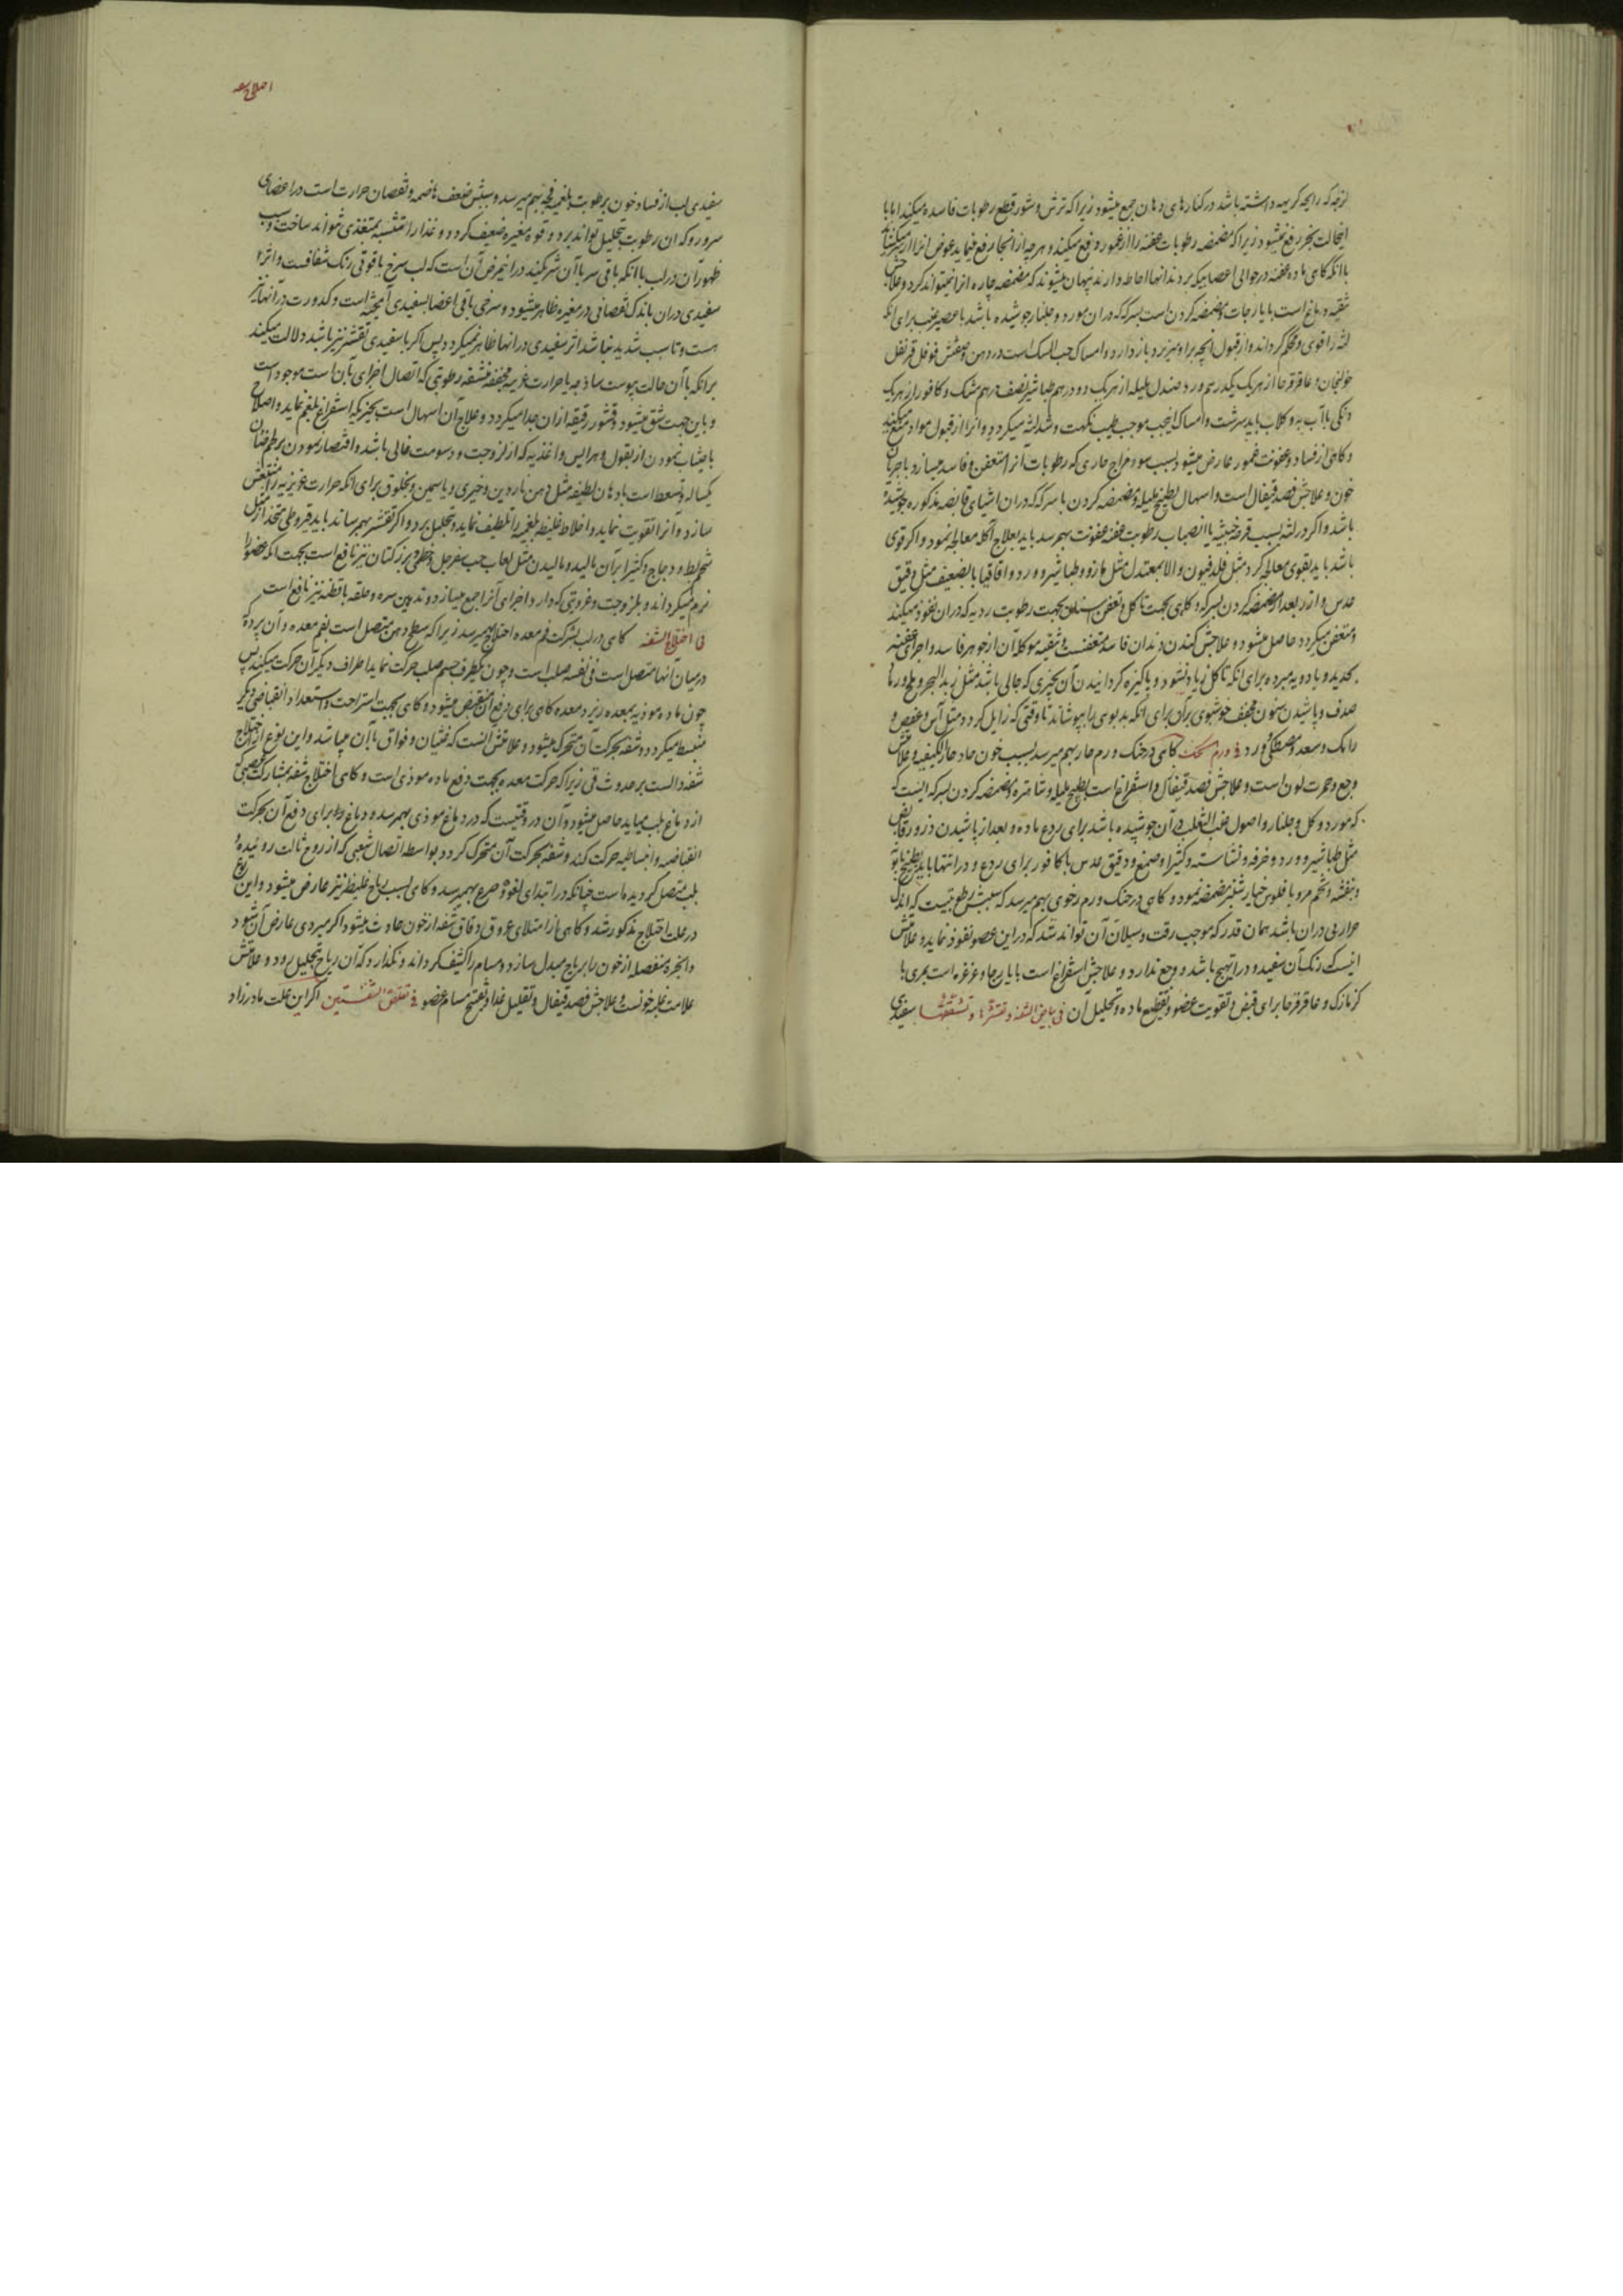 لزجه که رایحه کریهه داشته باشد در کنارهای دهان جمع میشود زیرا که ترش و شور قطع رطوبات فاسده میکند اما با
اینحالت بخر رفع نمیشود زیرا که مضمضه رطوبات عفنه را از غمور دفع میکند و هر چه از انجا رفع نماید عوض انرا از
با انکه گاهی ماده عفنه در حوالی اعصابیکه بر دندانها احاطه دارند پنهان میشوند که مضمضه چاره انرا نمیتواند کرد و علاجش
تنقیه دماغ است بایارجات و مضمضه کردن است بسرکه که در ان مورد و جلنار جوشیده باشد یا عصیر عنب برای انکه
لثه را قوی و محکم گرداند و از قبول انچه برا و میریزد باز دارد و امساک حب المسک است در دهن و صفتش فوفل قرنفل
خولنجان و عاقرقرحا از هر یک یکدرهم ورد صندل هلیله از هر یک دو درهم طباشیر نصف درهم مشک و کافور از هر یک
دانکی باآب به و کلاب باید سرشت و امساک اینحب موجب طیب نکهت و شد لثه میکردد و انرا از قبول مواد منع میکند
و کاهی از فساد و عفونت غمور عارض میشود بسبب سوء مزاج حاری که رطوبات آنرا متعفن و فاسد میسازد با جریان
خون و علاجش فصد قیفال است و اسهال بطبیخ هلیله و مضمضه کردن با سرکه که در ان اشیای قابضه مذکوره جوشیده
باشد و اکر در لثه بسبب قرحه خبیثه یا انصباب رطوبت عفنه عفونت بهمرسد باید بعلاج آکله معالجه نمود و اکر قوی
باشد باید بقوی معالجه کرد مثل فلدفیون و الا بمعتدل مثل مازو و طباشیر و ورد و اقاقیا یا بضعیف مثل دقیق
عدس و ارز بعد از مضمضه کردن بسرکه و کاهی بجهت تاکل و تعفن اسنان بجهت رطوبت ردیه که در ان نفوذ میکند
و متعفن میکردد حاصل میشود و علاجش کندن دندان فاسد متعفنست و تنقیه موکله آن از جوهر فاسد و اجزای عفنه
بحدید و بادویه مبرده برای انکه تاکل زیاد نشود و پاکیزه کردانیدن آن بچیزی که جالی باشد مثل زبد البحر و ملح و رماد
صدف و پاشیدن سنون مجفف خوشبوی بران برای انکه بد بوی را بپوشاند تا وقتی که زایل کردد مثل آس و عفص و
رامک و سعد و مصطکی و ورد فی ورم الحنک کاهی در حنک ورم حار بهم میرسد بسبب خون حاد حار الکیفیه و علامتش
وجع و حمرت لون است و علاجش فصد قیفال و استفراغ است بطبیخ هلیله و شاهتره و مضمضه کردن بسرکه ایست
که مورد و کل و جلنار و اصول عنب الثعلب در آن جوشیده باشد برای ردع ماده و بعد از پاشیدن ذرور قابض
مثل طباشیر و ورد و خرفه و نشاسته و کتیرا و صمغ و دقیق عدس با کافور برای ردع و در انتها باید بطبیخ بابونه
و بنفشه و تخم مرو با فلوس خیارشنبر مضمضه نمود و کاهی در حنک ورم رخوی بهم میرسد که سببش بلغمیست که اندک
حرارتی در ان باشد همان قدر که موجب رقت و سیلان آن تواند شد که در این عضو نفوذ نماید و علامتش
اینست که رنک آن سفید و در ان تهبج باشد و وجع ندارد و علاجش استفراغ است بایارجها و غرغره است بمری با
کزمازک و عاقرقرحا برای قبض و تقویت عضو و تقطیع ماده و تحلیل آن فی بیاض الشفه و تقشرها و تشققها سفیدی
اختلاج شفه
سفیدی لب از فساد خون برطوبت بلغمیه فجه بهم میرسد و سببش ضعف هاضمه و نقصان حرارت است در اعضای
سر و رو که ان رطوبت بتحلیل تواند برد و قوه مغیره ضعیف کردد و غذا را متشبه بمتغذی نتواند ساخت و سبب
ظهور آن در لب با انکه باقی سر با آن شریکند در اینمرض آن است که لب سرخ یاقوتی رنک شفافست و اثر
سفیدی در ان باندک نقصانی در مغیره ظاهر میشود و سرخی باقی اعضا بسفیدی آمیخته است و کدورت در آنها نیز
هست و تا سبب شدید نباشد اثر سفیدی در انها ظاهر نمیکردد پس اکر با سفیدی تقشر نیز باشد دلالت میکند
برانکه با آن حالت یبوست ساذجه یا حرارت غریبه مجففه منشفه رطوبتی که اتصال اجزای بآن است موجود است
و باین جهت شق میشود و قشور رقیقه ازان جدا میکردد و علاج آن اسهال است بچیزیکه استفراغ بلغم نماید و اصلاح
باجتناب نمودن از بقول و هرایس و اغذیه که از لزوجت و دسومت خالی باشد و اقتصار نمودن بر لحم ضان
یکساله و تسعط است بادهان لطیفه مثل دهن ناردین و خیری و یاسمین و بخلوق برای انکه حرارت غریزیه را منتعش
سازد و آنرا تقویت نماید و اخلاط غلیظه بلغمیه را تلطیف نماید و تحلیل برد و اکر تقشر بهمرساند باید قیروطی متخذ از مثل
شحم بط و دجاج و کتیرا بر آن مالید و مالیدن مثل لعاب حب سفرجل و خطمی و بزر کتان نیز نافع است بجهت انکه عضو را
نرم میکرداند و بلزوجت و غرویتی که دارد اجزای آنرا جمع میسازد و تدهین سره و حلقه باقطنه نیز نافع است
فی اختلاج الشفه کاهی در لب بشرکت فم معده اختلاج بهمیرسد زیرا که سطح دهن متصل است بفم معده و آن پرده که
در میان آنها متصل است فی نفسه صلب است و چون یکطرف جسم صلب حرکت نماید اطراف دیکر آن حرکت میکند پس
چون ماده موذیه بمعده ریزد معده کاهی برای دفع آن منقبض میشود و کاهی بجهت استراحت و استعداد انقباض دیکر
منبسط میکردد و شفه بحرکت آن متحرک میشود و علامتش انست که غثیان و فواق باآن میباشد و این نوع از اختلاج
شفه دالست بر حدوث قی زیرا که حرکت معده بجهت دفع ماده موذی است و کاهی اختلاج شفه بمشارکت عصبی که
از دماغ بلب میاید حاصل میشود و آن در وقتیست که در دماغ موذی بهمرسد و دماغ برای دفع آن بحرکت
انقباضیه و انبساطیه حرکت کند و شفه بحرکت آن متحرک کردد بواسطه اتصال شعبی که از زوج ثالث روئیده
بلب متصل کردیده است چنانکه در ابتدای لقوه و صرع بهمیرسد و کاهی بسبب ریاح غلیظه نیز عارض میشود و این نوع
در علت اختلاج مذکور شد و کاهی از امتلای عروق دقاق شفه از خون حادث میشود اکر مبردی عارض آن شود
و ابخره منفصله از خون را بریاح مبدل سازد و مسام را کثیف کرداند و نکذارد که آن ریاح بتحلیل رود و علامتش
علامت غلبه خونست و علاجش فصد قیفال و تقلیل غذا و تفتیح مسام عضو فی تقلق الشفتین اکر این علت مادرزاد